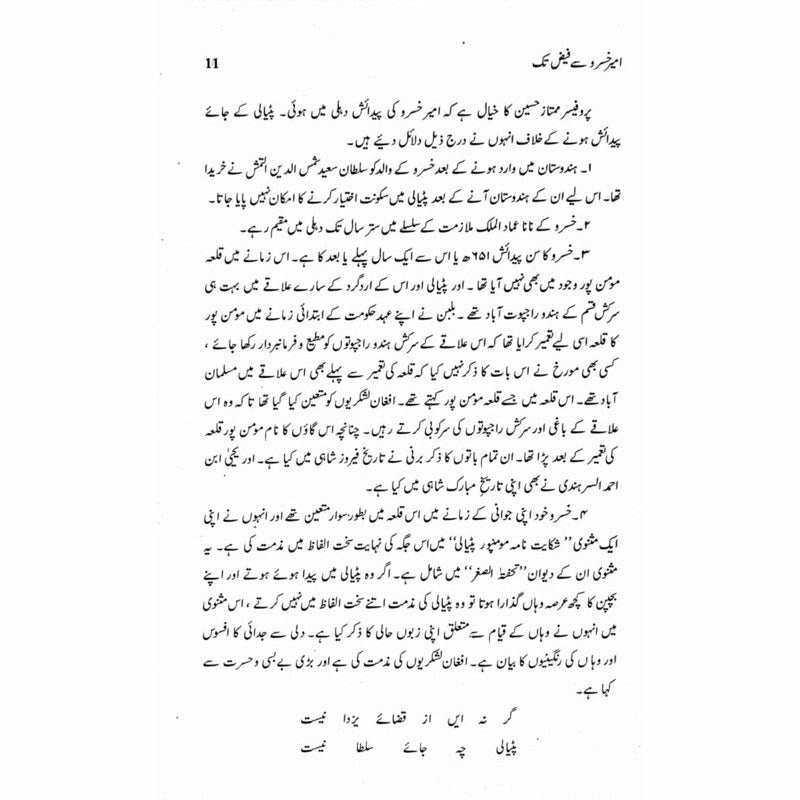 امیر خسرو سے فیض تک 11
پروفیسر ممتاز حسین کا خیال ہے کہ امیر خسرو کی پیدائش دہلی میں ہوئی۔ پٹیالی کے جائے
پیدائش ہونے کے خلاف انہوں نے درج ذیل دلائل دیئے ہیں۔
۱۔ ہندوستان میں وارد ہونے کے بعد خسرو کے والد کو سلطان سعید شمس الدین التمش نے خریدا
تھا۔ اس لیے ان کے ہندوستان آنے کے بعد پٹیالی میں سکونت اختیار کرنے کا امکان نہیں پایا جاتا۔
۲۔ خسرو کے نانا عماد الملک ملازمت کے سلسلے میں ستر سال تک دہلی میں مقیم رہے۔
۳۔ خسرو کا سن پیدائش ۶۵۱ھ یا اس سے ایک سال پہلے یا بعد کا ہے۔ اس زمانے میں قلعہ
مؤمن پور وجود میں بھی نہیں آیا تھا ۔ اور پٹیالی اور اس کے اردگرد کے سارے علاقے میں بہت ہی
سرکش قسم کے ہندو راجپوت آباد تھے ۔ بلبن نے اپنے عہد حکومت کے ابتدائی زمانے میں مؤمن پور
کا قلعہ اسی لیے تعمیر کرایا تھا کہ اس علاقے کے سرکش ہندو راجپوتوں کو مطیع و فرمانبردار رکھا جائے ،
کسی بھی مورخ نے اس بات کا ذکر نہیں کیا کہ قلعہ کی تعمیر سے پہلے بھی اس علاقے میں مسلمان
آباد تھے۔ اس قلعہ میں جسے قلعہ مؤمن پور کہتے تھے۔ افغان لشکریوں کو متعین کیا گیا تھا تا کہ وہ اس
علاقے کے باغی اور سرکش راجپوتوں کی سرکوبی کرتے رہیں۔ چنانچہ اس گاؤں کا نام مؤمن پور قلعہ
کی تعمیر کے بعد پڑا تھا۔ ان تمام باتوں کا ذکر برنی نے تاریخ فیروز شاہی میں کیا ہے۔ اور یحییٰ ابن
احمد السرہندی نے بھی اپنی تاریخِ مبارک شاہی میں کیا ہے۔
۴۔ خسرو خود اپنی جوانی کے زمانے میں اس قلعہ میں بطور سوار متعین تھے اور انہوں نے اپنی
ایک مثنوی ’’ شکایت نامہ مومنپور پٹیالی‘‘ میں اس جگہ کی نہایت سخت الفاظ میں مذمت کی ہے۔ یہ
مثنوی ان کے دیوان ’’تحفتہ الصغر‘‘ میں شامل ہے۔ اگر وہ پٹیالی میں پیدا ہوئے ہوتے اور اپنے
بچپن کا کچھ عرصہ وہاں گذارا ہوتا تو وہ پٹیالی کی مذمت اتنے سخت الفاظ میں نہیں کرتے ، اس مثنوی
میں انہوں نے وہاں کے قیام سے متعلق اپنی زبوں حالی کا ذکر کیا ہے۔ دلی سے جدائی کا افسوس
اور وہاں کی رنگینیوں کا بیان ہے۔ افغان لشکریوں کی مذمت کی ہے اور بڑی بے بسی و حسرت سے
کہا ہے۔
گر نہ ایں از قضائے یزدا نیست
پٹیالی چہ جائے سلطا نیست